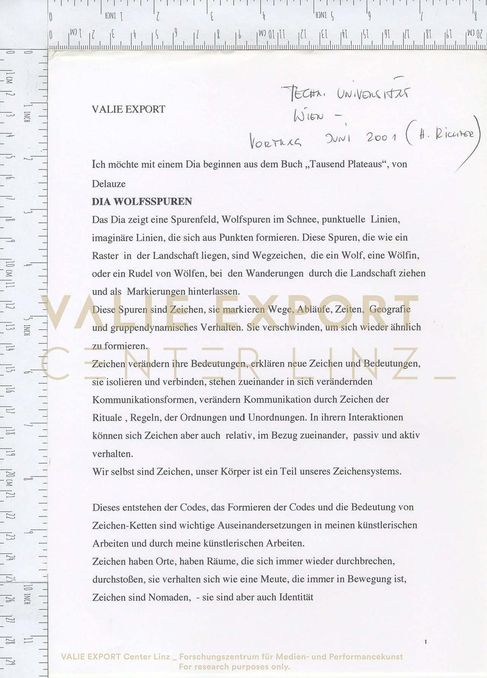 VALIE EXPORT
TECHN. UNIVERSITÄT
WIEN –
VORTRAG JUNI 2001 (H. RICHTER)
Ich möchte mit einem Dia beginnen aus dem Buch „Tausend Plateaus“, von
Delauze
DIA WOLFSSPUREN
Das Dia zeigt eine Spurenfeld, Wolfspuren im Schnee, punktuelle Linien,
imaginäre Linien, die sich aus Punkten formieren. Diese Spuren, die wie ein
Raster in der Landschaft liegen, sind Wegzeichen, die ein Wolf, eine Wölfin,
oder ein Rudel von Wölfen, bei den Wanderungen durch die Landschaft ziehen
und als Markierungen hinterlassen.
Diese Spuren sind Zeichen, sie markieren Wege, Abläufe, Zeiten, Geografie
und gruppendynamisches Verhalten. Sie verschwinden, um sich wieder ähnlich
zu formieren.
Zeichen verändern ihre Bedeutungen, erklären neue Zeichen und Bedeutungen,
sie isolieren und verbinden, stehen zueinander in sich verändernden
Kommunikationsformen, verändern Kommunikation durch Zeichen der
Rituale , Regeln, der Ordnungen und Unordnungen. In ihrern Interaktionen
können sich Zeichen aber auch relativ, im Bezug zueinander, passiv und aktiv
verhalten.
Wir selbst sind Zeichen, unser Körper ist ein Teil unseres Zeichensystems.
Dieses entstehen der Codes, das Formieren der Codes und die Bedeutung von
Zeichen-Ketten sind wichtige Auseinandersetzungen in meinen künstlerischen
Arbeiten und durch meine künstlerischen Arbeiten.
Zeichen haben Orte, haben Räume, die sich immer wieder durchbrechen,
durchstoßen, sie verhalten sich wie eine Meute, die immer in Bewegung ist,
Zeichen sind Nomaden, - sie sind aber auch Identität
1
VALIE EXPORT
CENTER LINZ_
VALIE EXPORT Center Linz _ Forschungszentrum für Medien- und Performancekunst
For research purposes only.